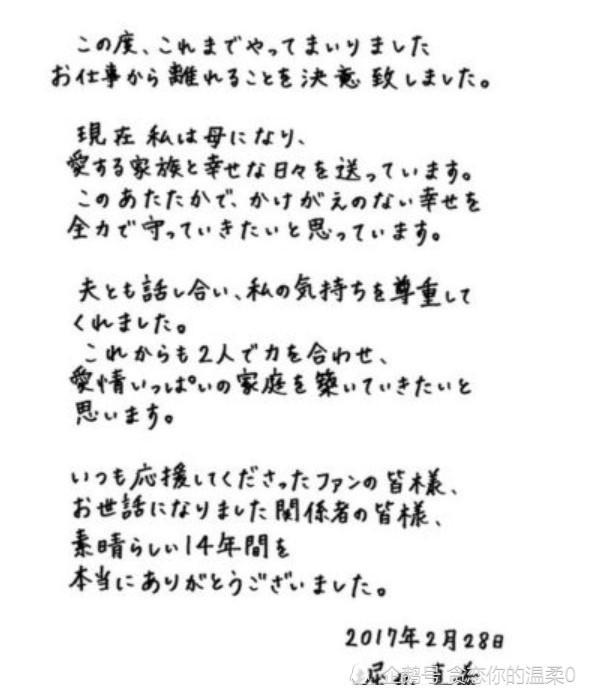 この度、これまでやってまいりました
お仕事から離れることを決意致しました。
現在 私は母になり、
愛する家族と幸せな日々を送っています。
このあたたかで、かけがえのない幸せを
全力で守っていきたいと思っています。
夫とも話し合い、私の気持ちを尊重して
くれました。
これからも2人で力を合わせ、
愛情いっぱいの家庭を築いていきたいと
思います。
いつも応援してくださったファンの皆様、
お世話になりました関係者の皆様、
素晴らしい14年間を
本当にありがとうございました。
2017年2月28日
企鹅号 贪恋你的温柔0